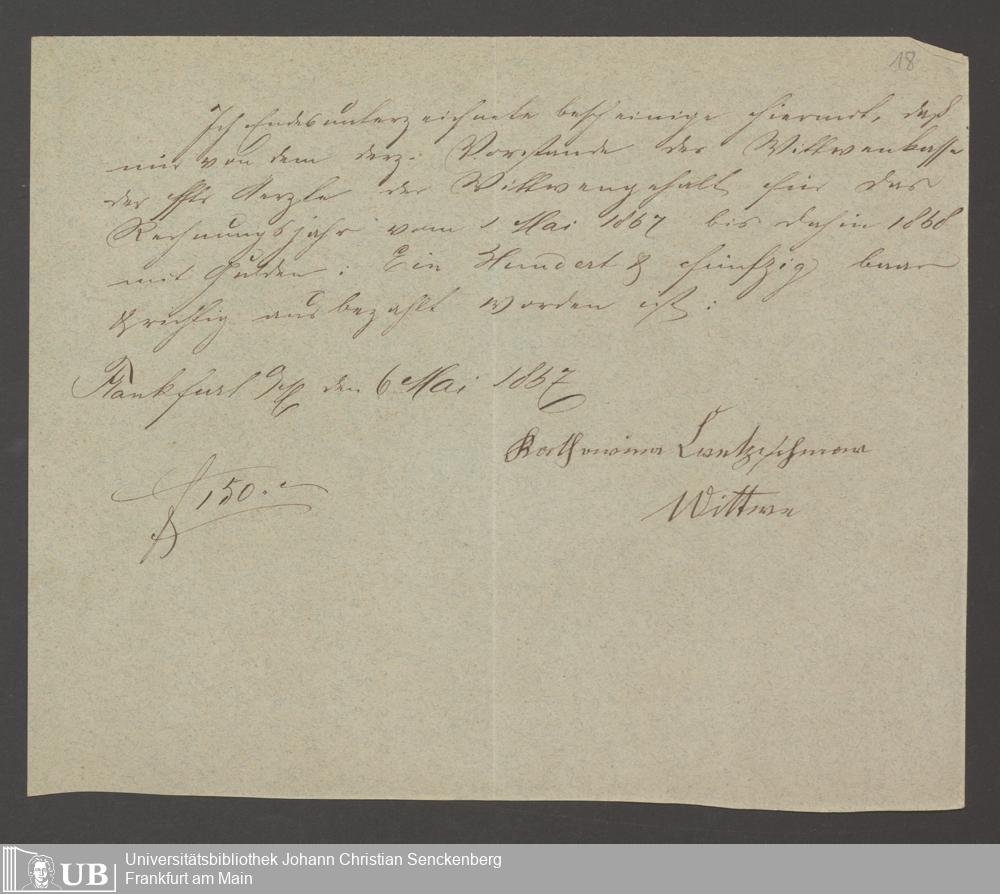 18
Ich Endesunterzeichnete bescheinige hiermit, daß
mir von dem derz: Vorstande der Wittwenkasse
der Aerzte der Wittwengehalt für das
Rechnungsjahr vom 1 Mai 1867 bis dahin 1868
mit Gulden: Ein Hundert & fünfzig baar
& richtig ausbezahlt worden ist:
Frankfurt a/M den 6 Mai 1867
Katharina
f 150.-
Wittwe
UB
Universitätsbibliothek Johann Christian Senckenberg
Frankfurt am Main